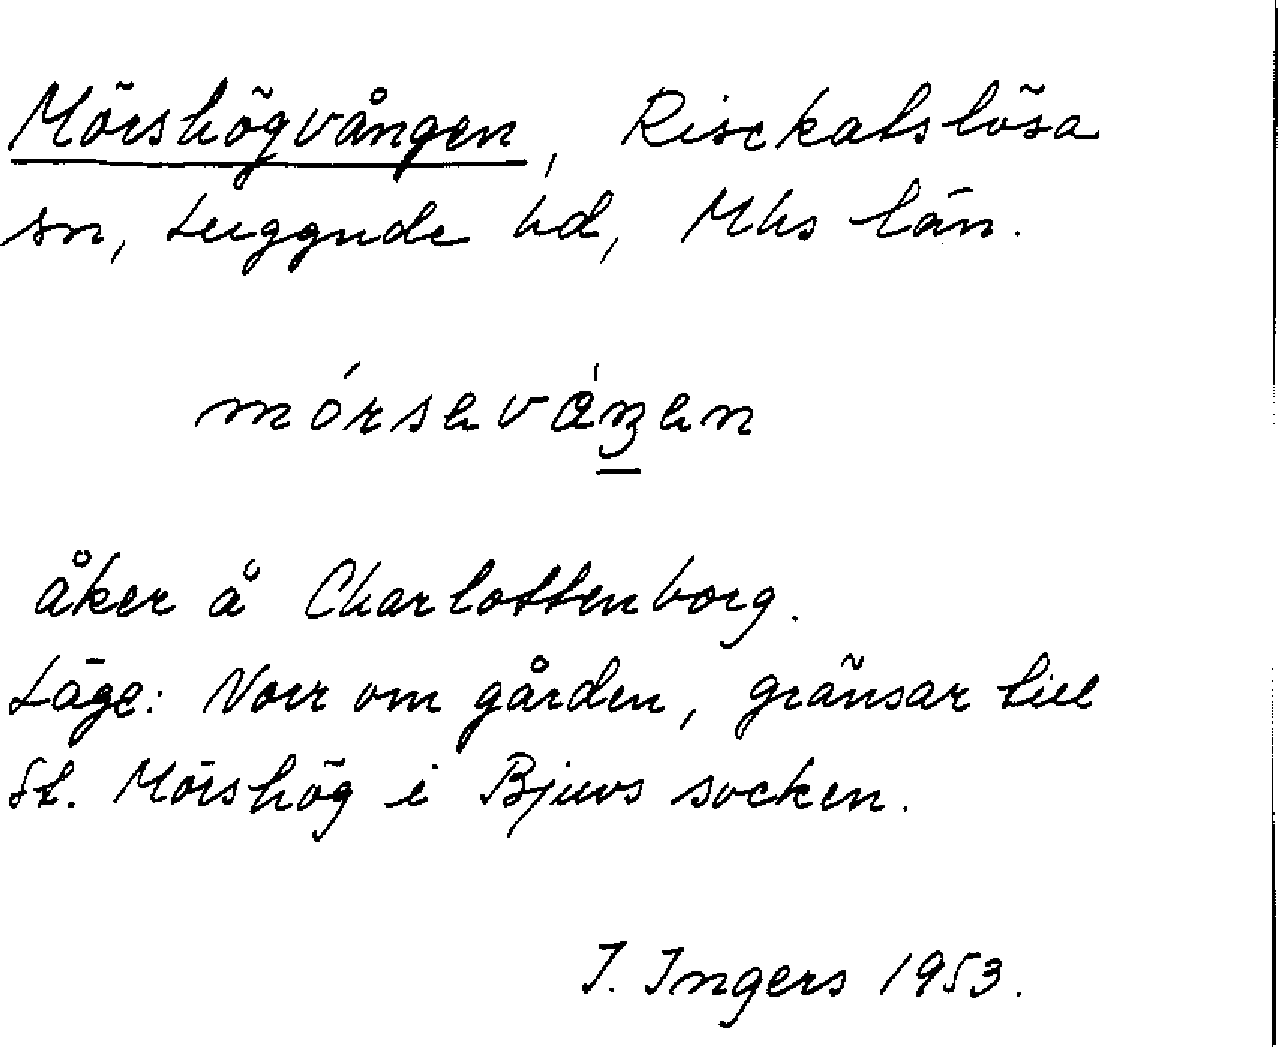 Mörshögvången, Risekatslösa
sn, Luggude hd, Mhs län.
mórsevåŋen
åker å Charlottenborg.
Läge: Norr om gården, gränsar till
St. Mörshög i Bjuvs socken.
I. Ingers 1953.